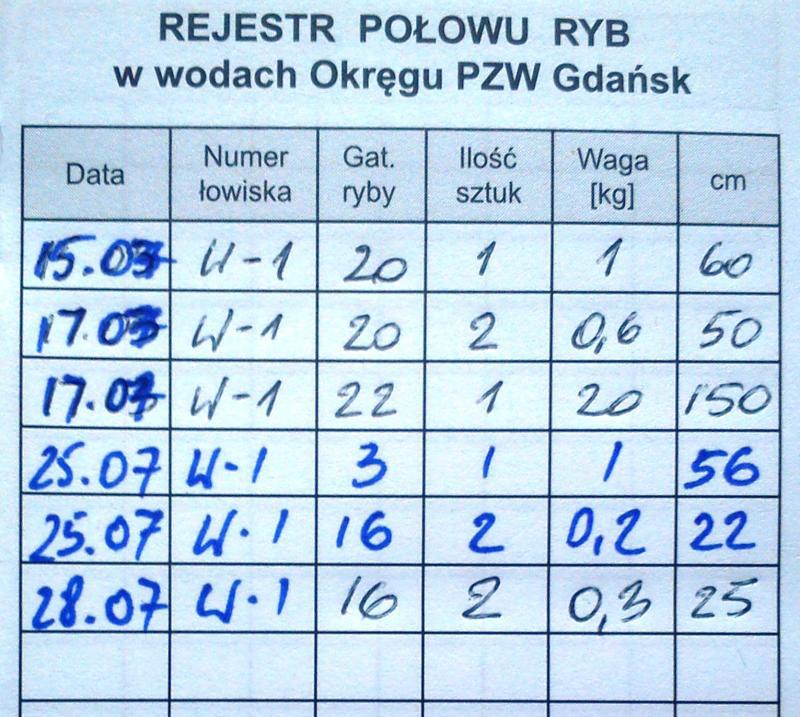 REJESTR POŁOWU RYB
w wodach Okręgu PZW Gdańsk
Data Numer łowiska Gat. ryby Ilość sztuk Waga [kg] cm
15.07 W-1 20 1 1 60
17.07 W-1 20 2 0,6 50
17.07 W-1 22 1 20 150
25.07 W-1 3 1 1 56
25.07 W-1 16 2 0,2 22
28.07 W-1 16 2 0,3 25